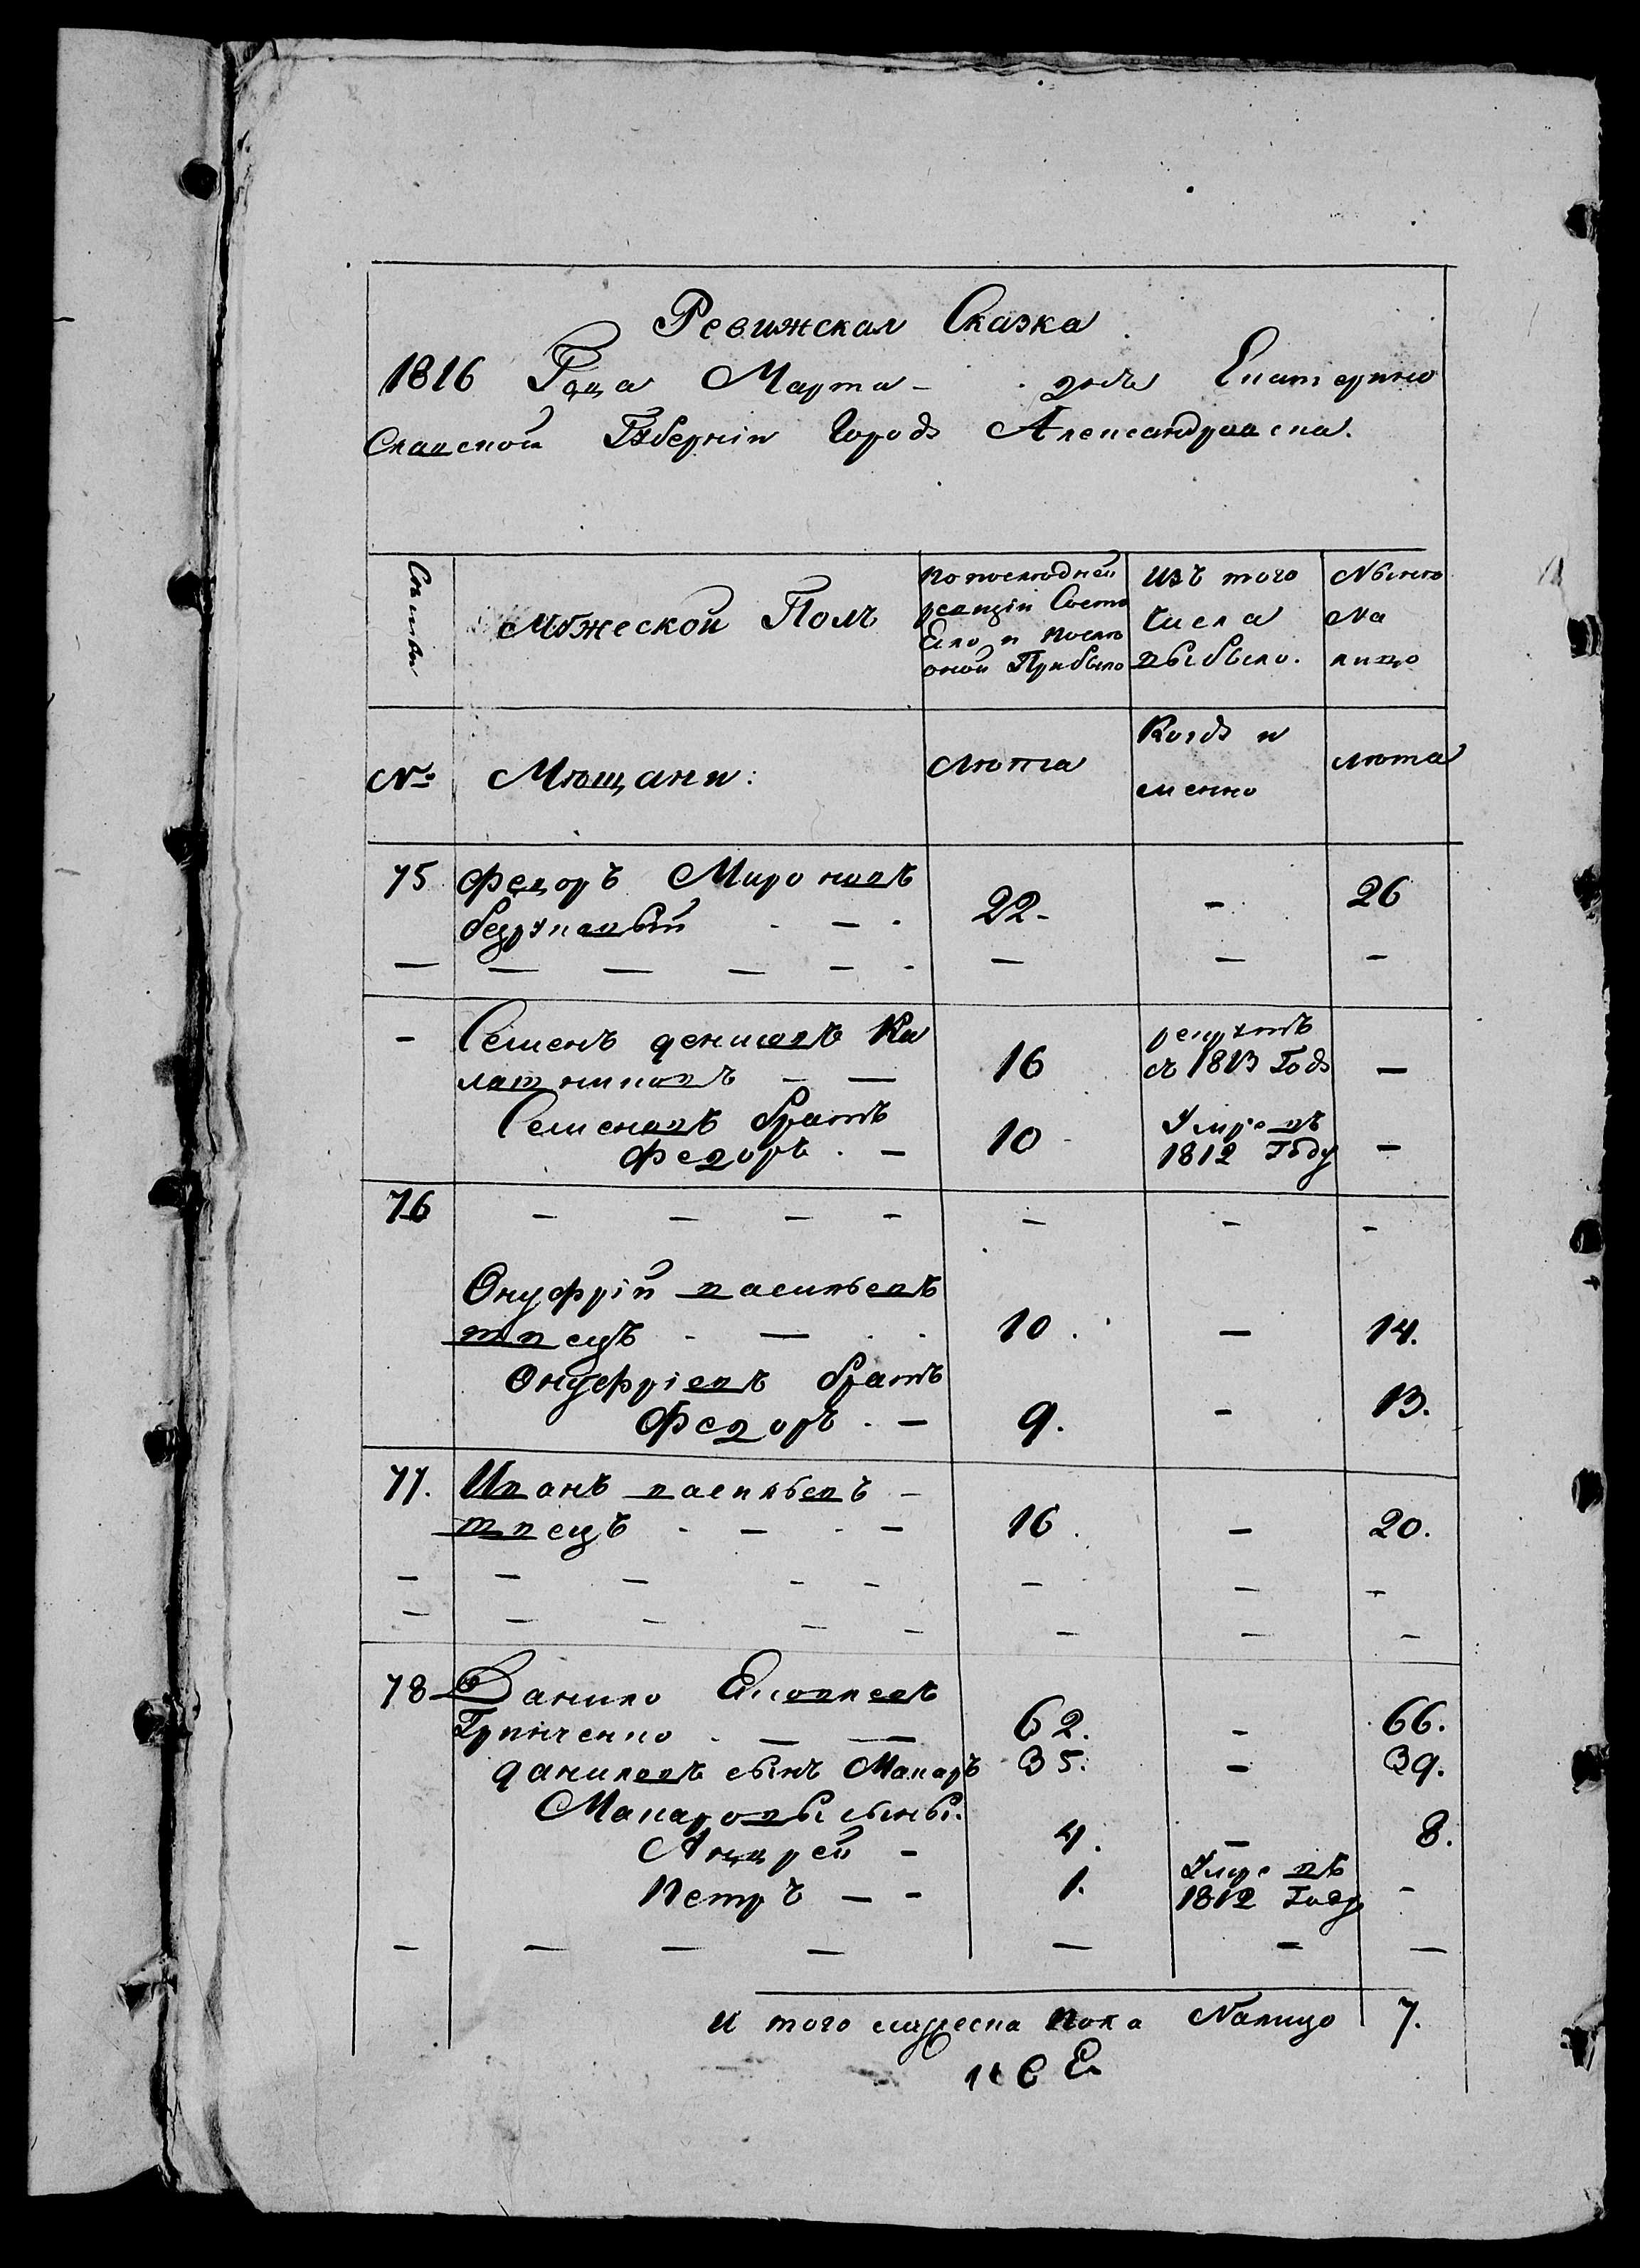 Ревижская Сказка
1816 Года Марта - дня Екатерино
Славской Губерніи Города Александровска.
Семьи
Мужеской Полъ
По последней
ревизіи Состо
яло и после
оной Прибыло
Изъ того
Числа
выбыло.
Ныне
На
лицо
№
Мещани:
Лета
Когда и
менно
Лета
75 Федоръ Мироновъ
22 - - 26
— — — — - - — — -
- Семенъ денисовъ Ка
латниковъ - — 16
рекрутъ
съ 1813 Года —
Семеновъ братъ
Федоръ . - 10 -
Умре въ
1812 Году -
76 - - - - - - -
Онуфрій васильевъ
швецъ . — . . 10. — 14.
Онуфріевъ братъ
Федоръ . - 9. - 13.
77. Иванъ васильевъ -
швецъ . - . - 16. - 20.
- - - - - - - -
- - - - - - - -
78 Данило
Гринченко . — — 62. - 66.
даниловъ сынъ Макаръ 35. - 39.
Макаровы сыны.
Андрей - 4. — 8.
Петръ — - 1.
Умре въ
1812 Году -
- — — — — - —
И того мужеска пола Налицо 7.